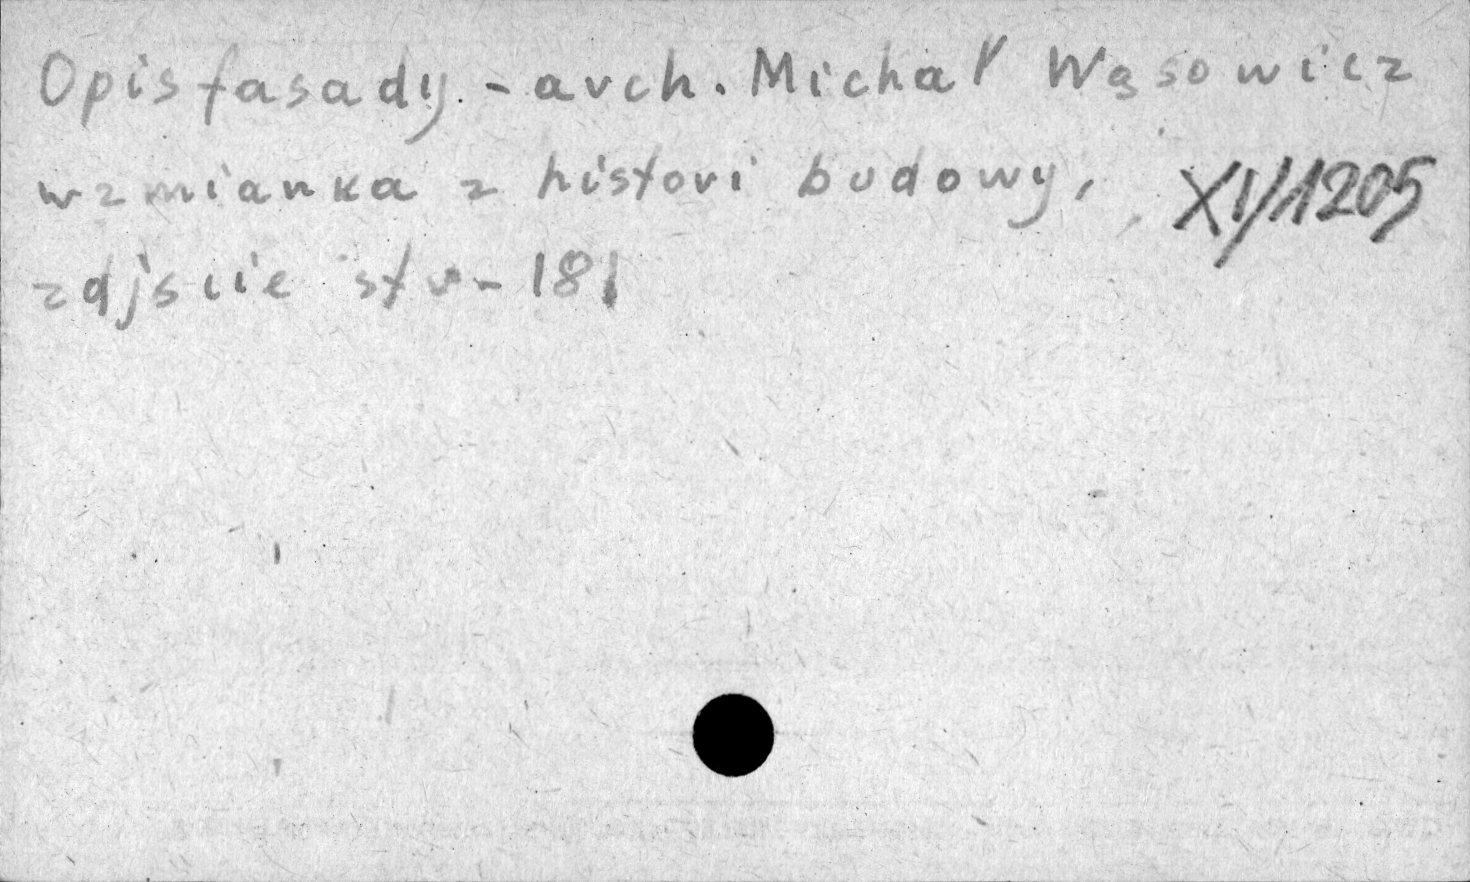 Opis fasady - arch. Michał Wąsowicz
wzmianka z histori budowy,
XV/1205
zdjscie str - 181